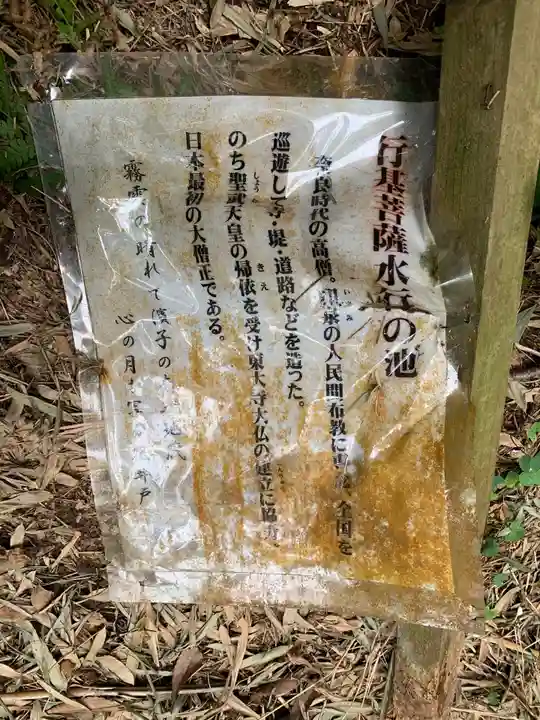 行基菩薩水の池
奈良時代の高僧。の人民間布教に 全国を
巡遊し寺・堤・道路などを造った。
のち聖武天皇の帰依を受け東大寺大仏の建立に協力。
しょうむ
きえ
日本最初の大僧正である。
霧 の晴れて の
心の月 井戸